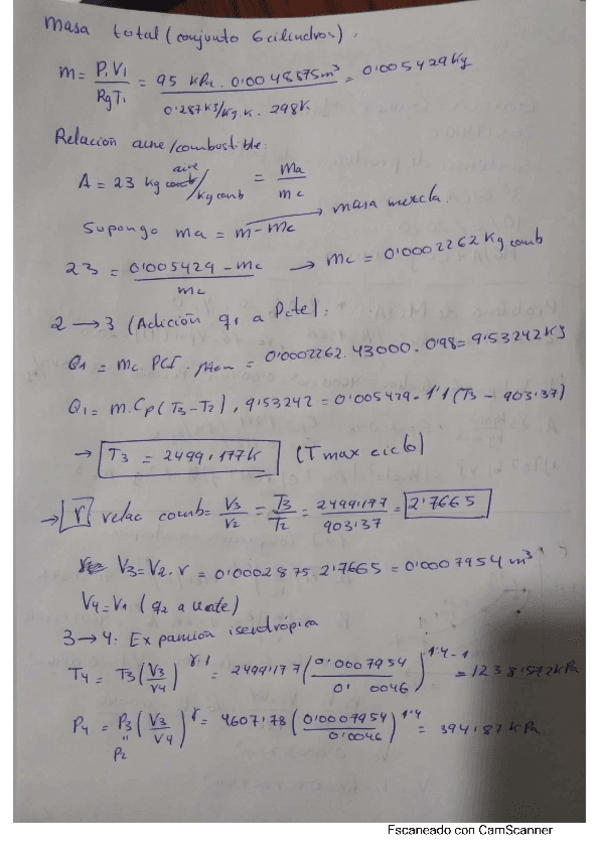 Masa total (conjunto 6 cilindros).
m = P₁V₁ / RgT₁ = 95 kPa . 0'0048875m³ / 0'287 kJ/kg.K . 298K = 0'005429 Kg
Relación aire/combustible:
A = 23 kg aire/kg comb = ma / mc
Supongo ma = m - mc → masa mezcla.
23 = 0'005429 - mc / mc → mc = 0'0002262 Kg comb
2 → 3 (Adición q₁ a Pcte):
Q₁ = mc. PCI. = 0'0002262. 43000. 0'98 = 9'53242 KJ
Q₁ = m. Cp (T₃ - T₂), 9'53242 = 0'005429 . 1'1 (T₃ - 903'37)
→ T₃ = 2499'177 K (T max ciclo)
→ r relac comb = V₃/V₂ = T₃/T₂ = 2499'177/903'37 = 2'7665
V₃ = V₂. r = 0'0002875. 2'7665 = 0'0007954 m³
V₄ = V₁ (q₂ a vcte)
3 → 4. Expansión isentrópica
T₄ = T₃ (V₃/V₄)^γ-1 = 2499'177 (0'0007954 / 0' 0046)^1'4-1 = 1238'572 kPa
P₄ = P₃ (V₃/V₄)^γ = 4607'78 (0'0007954 / 0'0046)^1'4 = 394'87 kPa
"
P₂
Escaneado con CamScanner